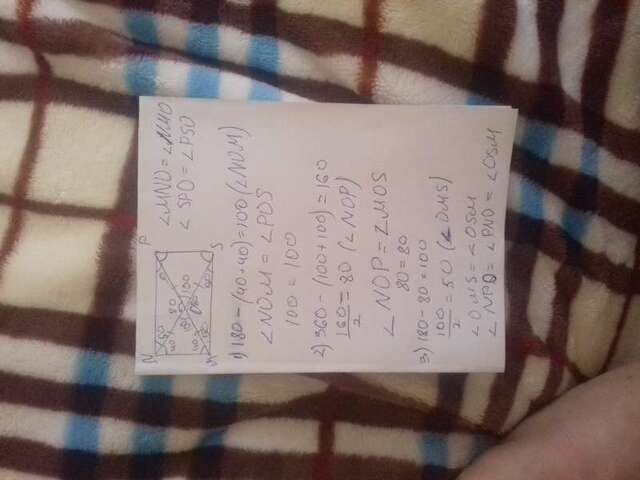 N P
50 80 40 100 100 80 40 50
M S
∠MNO = ∠NMO
∠SPO = ∠PSO
1) 180 - (40 + 40) = 100 (∠NOM)
∠NOM = ∠POS
100 = 100
2) 360 - (100 + 100) = 160
160/2 = 80 (∠NOP)
∠NOP = ∠MOS
80 = 80
3) 180 - 80 = 100
100/2 = 50 (∠OMS)
∠OMS = ∠OSM
∠NPO = ∠PNO = ∠OSM